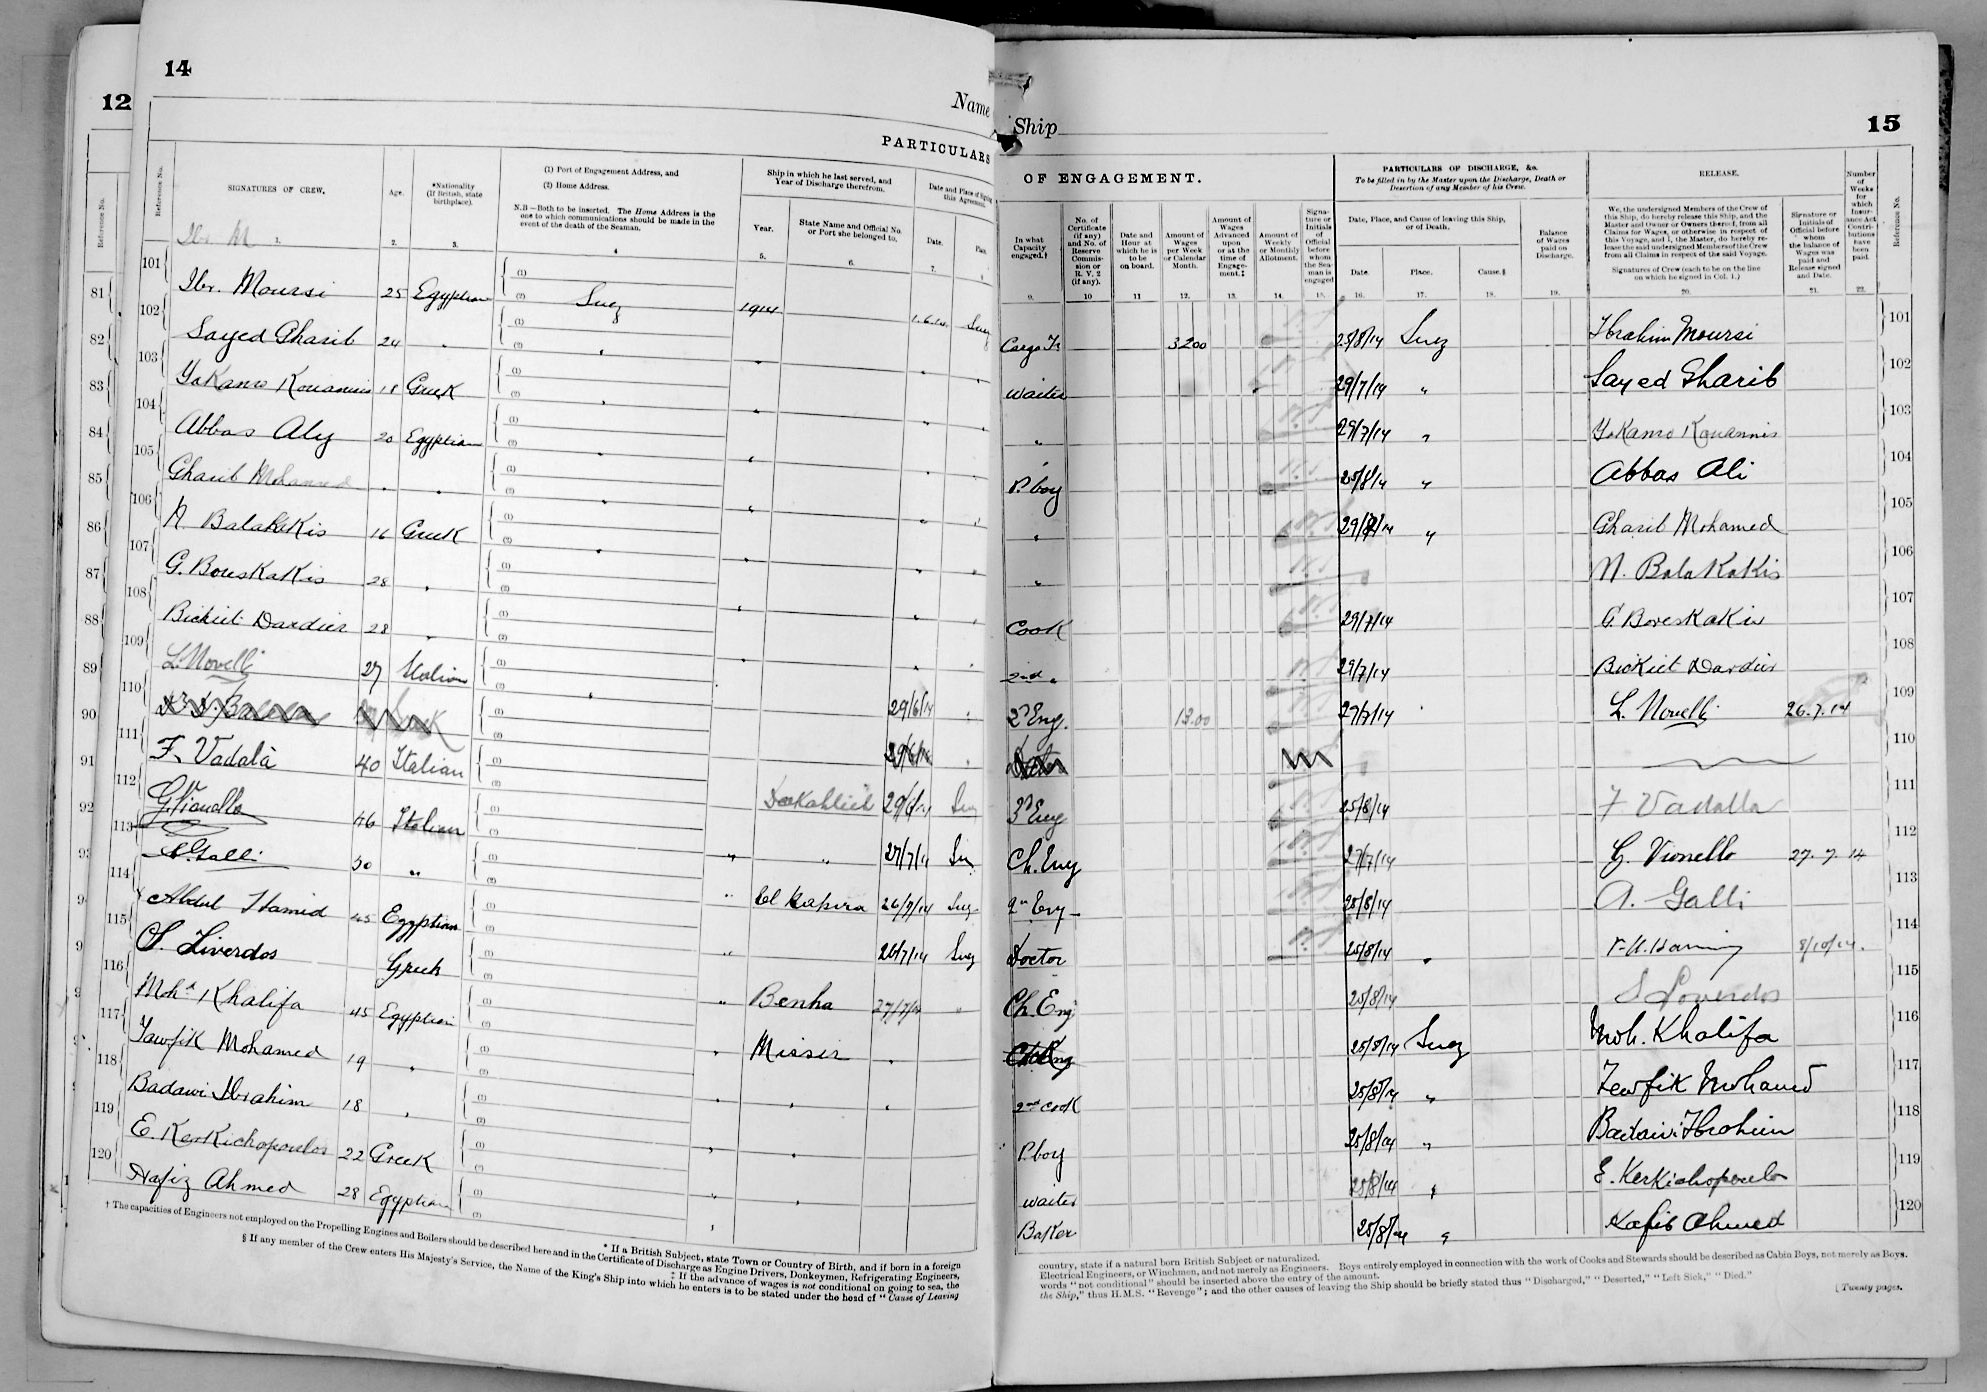 14
12
Name
PARTICULARS
Reference No.
Reference No.
SIGNATURES OF CREW.
Age.
*Nationality (If British, state birthplace).
(1) Port of Engagement Address, and
(2) Home Address.
N.B.—Both to be inserted. The Home Address is the one to which communications should be made in the event of the death of the Seaman.
Ship in which he last served, and Year of Discharge therefrom.
Year.
State Name and Official No. or Port she belonged to.
Date and Place of Signing this Agreement.
Date.
Place.
Ibr. M
1. 2. 3. 4 5. 6. 7.
81 101 Ibr. Moursi 25 Egyptian (1) (2) Suez 1914 1.6.14 Suez
82 102 Sayed Gharib 24 " (1) (2) " " " "
83 103 YaKanro Kouannis 18 Greek (1) (2) " " " "
84 104 Abbas Aly 20 Egyptian (1) (2) " " "
85 105 Gharib Mohamed " " (1) (2) " " " "
86 106 N. BalaKaKis 16 Greek (1) (2) " " " "
87 107 G. BoresKaKis 28 " (1) (2) " " "
88 108 Bickiet Dardier 28 " (1) (2) " " "
89 109 L. Novelli 27 Italian (1) (2) " 29/6/14 "
90 110 (1) (2) 29/6/14 "
91 111 F. Vadalà 40 Italian (1) (2) Dakahlieh 29/6/14 Suez
92 112 G Vianello 46 Italian (1) (2) " " 27/7/14 Suez
93 113 A. Galli 50 " (1) (2) " El Kahira 26/7/14 Suez
9 114 Abdul Hamid 45 Egyptian (1) (2) " 26/7/14 Suez
9 115 S. Liverdos Greek (1) (2) " Benha 27/7/14 "
9 116 Mohd Khalifa 45 Egyptian (1) (2) " Missir "
117 Tawfik Mohamed 19 " (1) (2) " " "
118 Badawi Ibrahim 18 " (1) (2) " "
119 E. KerKichopoulos 22 Greek (1) (2) " "
120 Hafiz Ahmed 28 Egyptian (1) (2) "
* If a British Subject, state Town or Country of Birth, and if born in a foreign
† The capacities of Engineers not employed on the Propelling Engines and Boilers should be described here and in the Certificate of Discharge as Engine Drivers, Donkeymen, Refrigerating Engineers,
‡ If the advance of wages is not conditional on going to sea, the
§ If any member of the Crew enters His Majesty's Service, the Name of the King's Ship into which he enters is to be stated under the head of "Cause of Leaving
Ship
15
OF ENGAGEMENT.
PARTICULARS OF DISCHARGE, &c.
To be filled in by the Master upon the Discharge, Death or Desertion of any Member of his Crew.
RELEASE.
In what Capacity engaged.†
No. of Certificate (if any) and No. of Reserve Commission or R.V. 2 (if any).
Date and Hour at which he is to be on board.
Amount of Wages per Week or Calendar Month.
Amount of Wages Advanced upon or at the time of Engagement.‡
Amount of Weekly or Monthly Allotment.
Signature or Initials of Official before whom the Seaman is engaged
Date, Place, and Cause of leaving this Ship, or of Death.
Date.
Place.
Cause.§
Balance of Wages paid on Discharge.
We, the undersigned Members of the Crew of this Ship, do hereby release this Ship, and the Master and Owner or Owners thereof, from all Claims for Wages, or otherwise in respect of this Voyage, and I, the Master, do hereby release the undersigned Members of the Crew from all Claims in respect of the said Voyage.
Signatures of Crew (each to be on the line on which he signed in Col. 1.)
Signature or Initials of Official before whom the balance of Wages was paid and Release signed and Date.
Number of Weeks for which Insurance Act Contributions have been paid.
Reference No.
9. 10 11 12. 13. 14. 15. 16. 17. 18. 19. 20. 21. 22.
Cargo Fr 3200 25/8/14 Suez Ibrahim Moursi 101
Waiter 29/7/14 " Sayed Gharib 102
" 29/7/14 " YaKanro Kouannis 103
P. boy 25/8/14 " Abbas Ali 104
" 29/7/14 " Gharib Mohamed 105
" N. BalaKaKis 106
Cook 29/7/14 G. BoresKaKis 107
2nd " 29/7/14 Bickiet Dardier 108
2d Eng. 13.00 27/7/14 " L. Novelli 26.7.14 109
110
3d Eng 25/8/14 F Vadalla 111
Ch. Eng 27/7/14 G. Vionello 27.7.14 112
2nd Eng 25/8/14 A. Galli 113
Doctor 25/8/14 " 8/10/14. 114
Ch. Eng 25/8/14 S Loverdos 115
25/8/14 Suez Moh. Khalifa 116
2nd cook 25/8/14 " Tewfik Mohamed 117
P. boy 25/8/14 " Badawi Ibrahim 118
Waiter 25/8/14 " E. KerKichopoulo 119
Baker 25/8/14 " Hafis Ahmed 120
country, state if a natural born British Subject or naturalized.
Electrical Engineers, or Winchmen, and not merely as Engineers. Boys entirely employed in connection with the work of Cooks and Stewards should be described as Cabin Boys, not merely as Boys.
words "not conditional" should be inserted above the entry of the amount.
the Ship," thus H.M.S. "Revenge"; and the other causes of leaving the Ship should be briefly stated thus "Discharged," "Deserted," "Left Sick," "Died."
[Twenty pages.